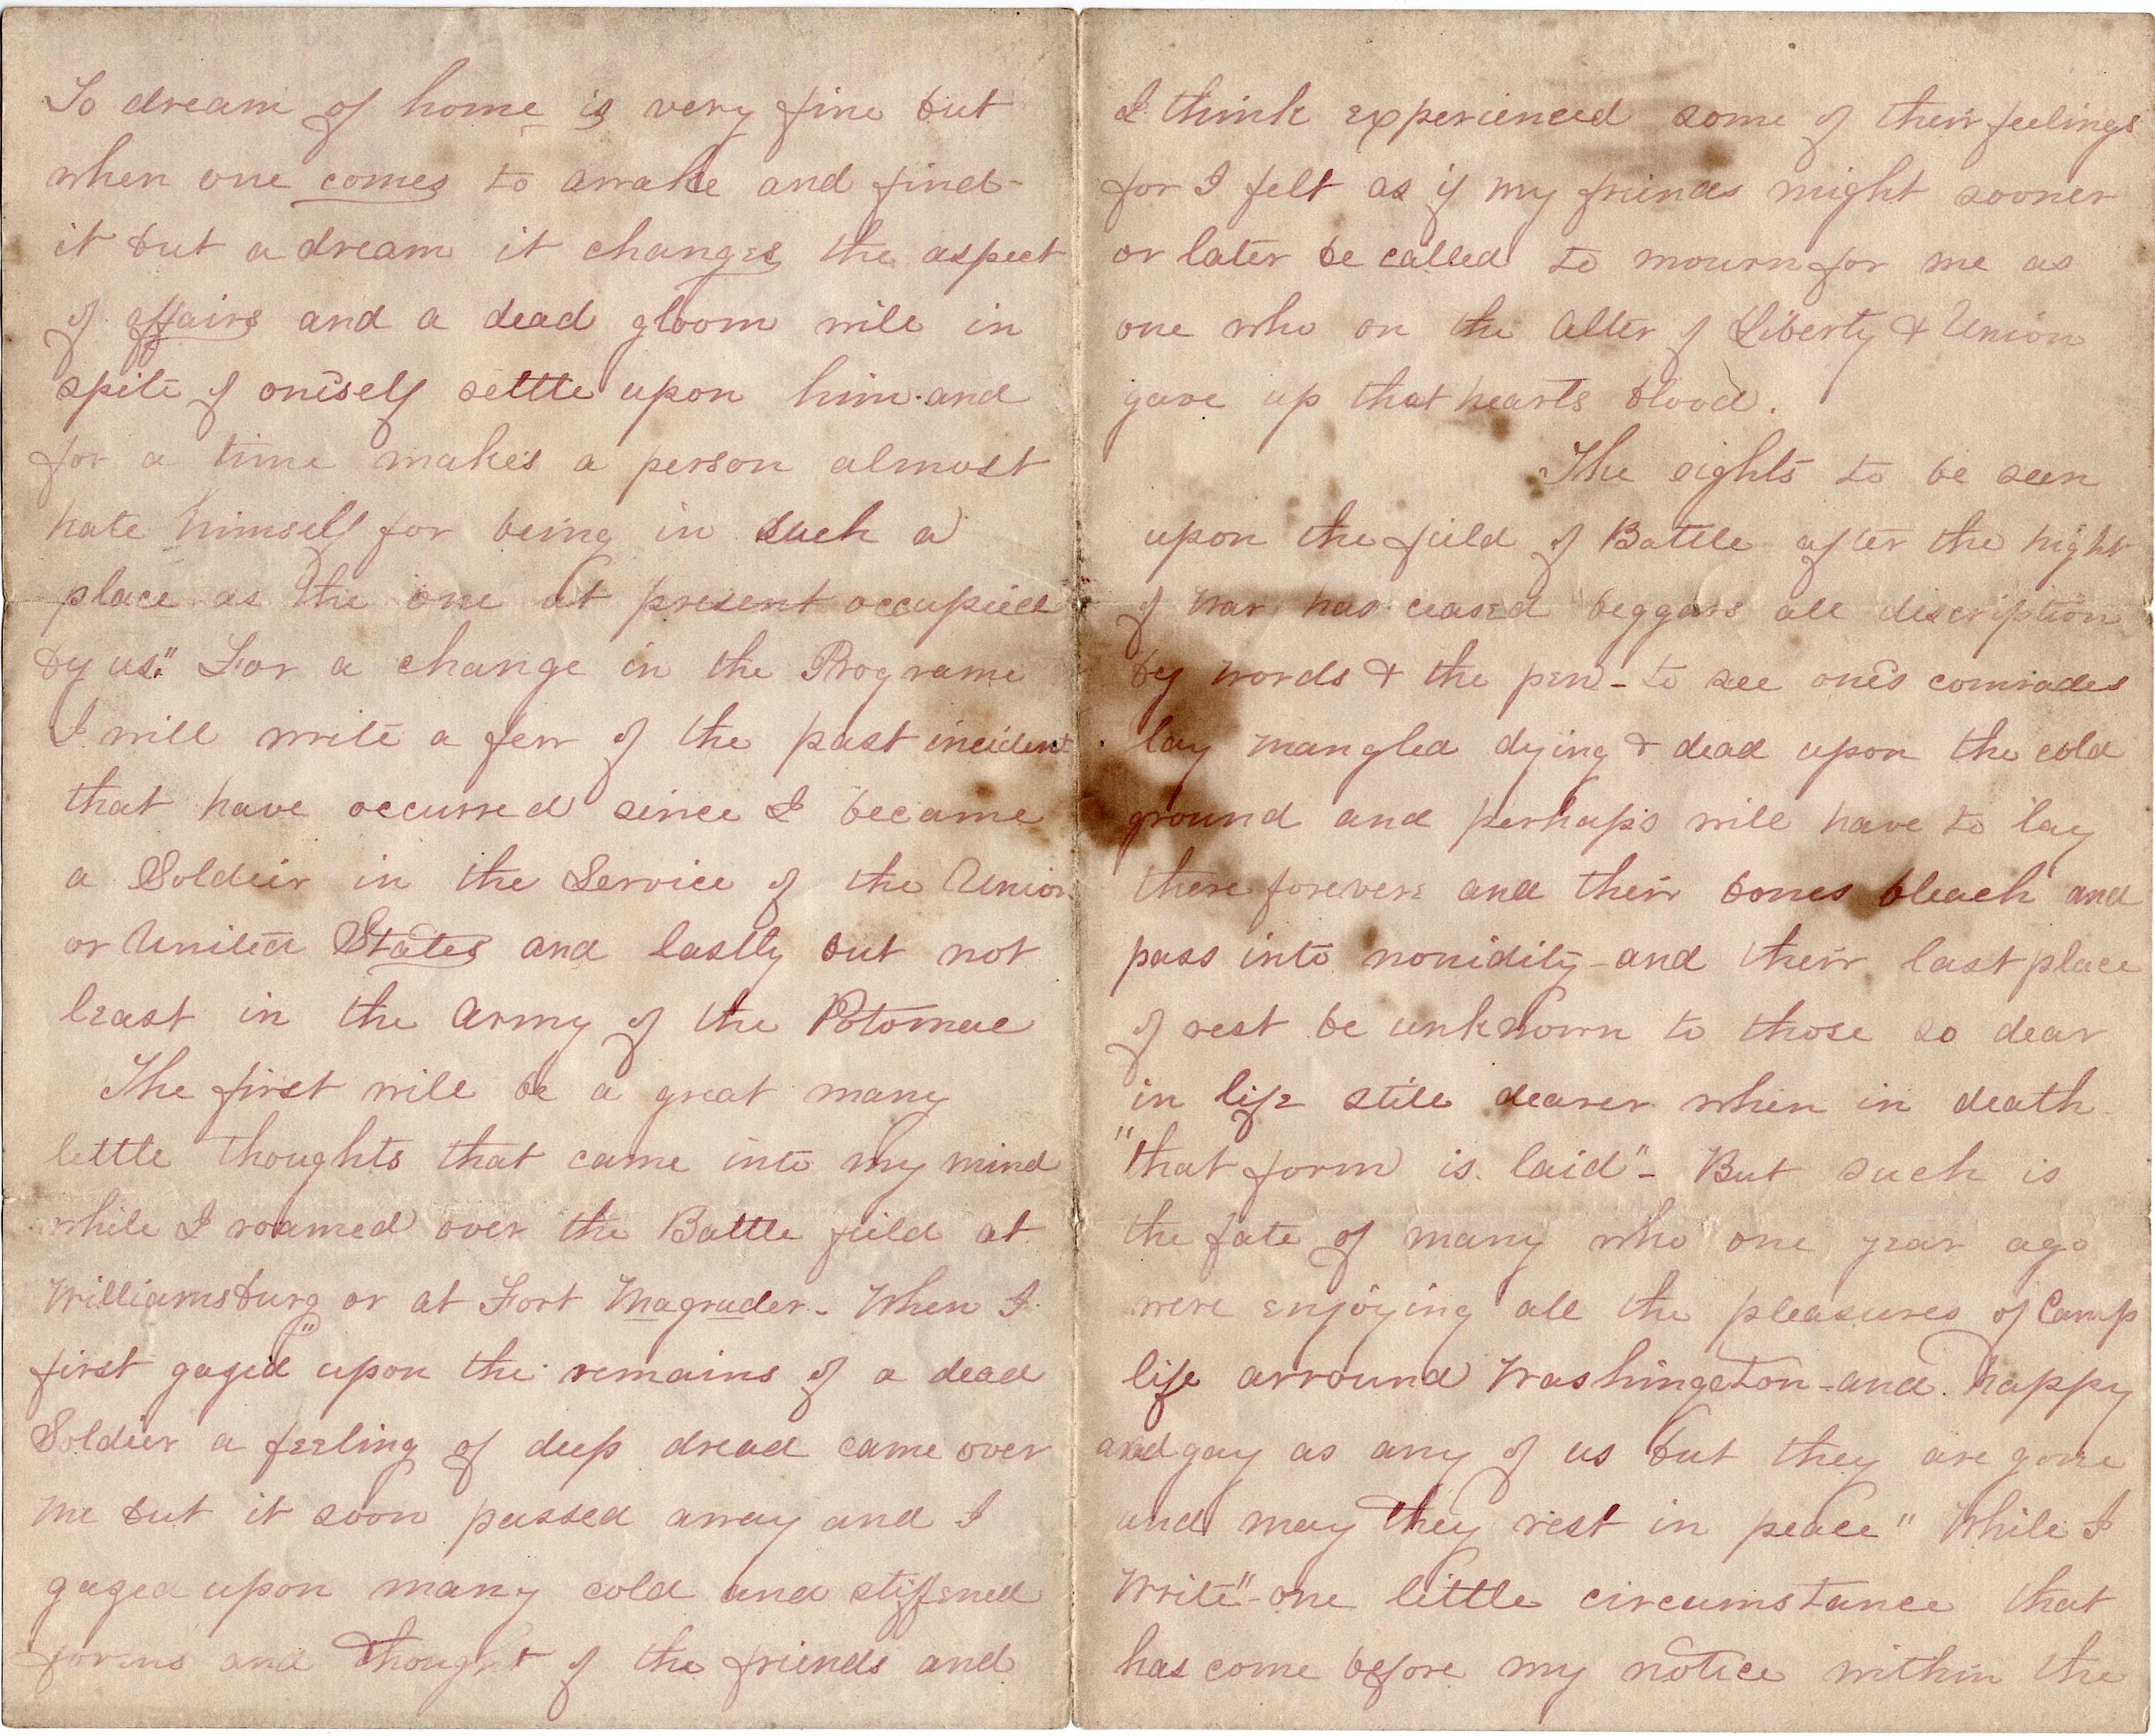 To dream of home is very fine but
when one comes to awake and find
it but a dream it changes the aspect
of affairs and a dead gloom will in
spite of one'self settle upon him and
for a time makes a person almost
hate himself for being in such a
place as the one at present occupied
by us." For a change in the Programe
I will write a few of the past incident
that have occurred since I became
a Soldier in the Service of the Union
or United States and lastly but not
least in the Army of the Potomac
The first will be a great many
little thoughts that came into my mind
while I roamed over the Battle field at
Williamsburg or at Fort Magruder - When I
first gazed" upon the remains of a dead
Soldier a feeling of deep dread came over
me but it soon passed away and I
gazed upon many cold and stiffened
forms and thought of the friends and
I think experienced some of their feelings
for I felt as if my friends might sooner
or later be called to mourn for me as
one who on the Alter of Liberty & Union
gave up that hearts blood.
The sights to be seen
upon the field of Battle after the hight
of War has ceased beggars all discription
by words & the pen - to see one's comrades
lay mangled dying & dead upon the cold
ground and perhaps will have to lay
there forever and their bones bleach and
pass into nonidity - and their last place
of rest be unknown to those so dear
in life still dearer when in death
"that form is laid" - But such is
the fate of many who one year ago
were enjoying all the pleasures of Camp
life arround Washingeton - and happy
and gay as any of us but they are gone
and may "they rest in peace" While I
write" - one little circumstance that
has come before my notice within the